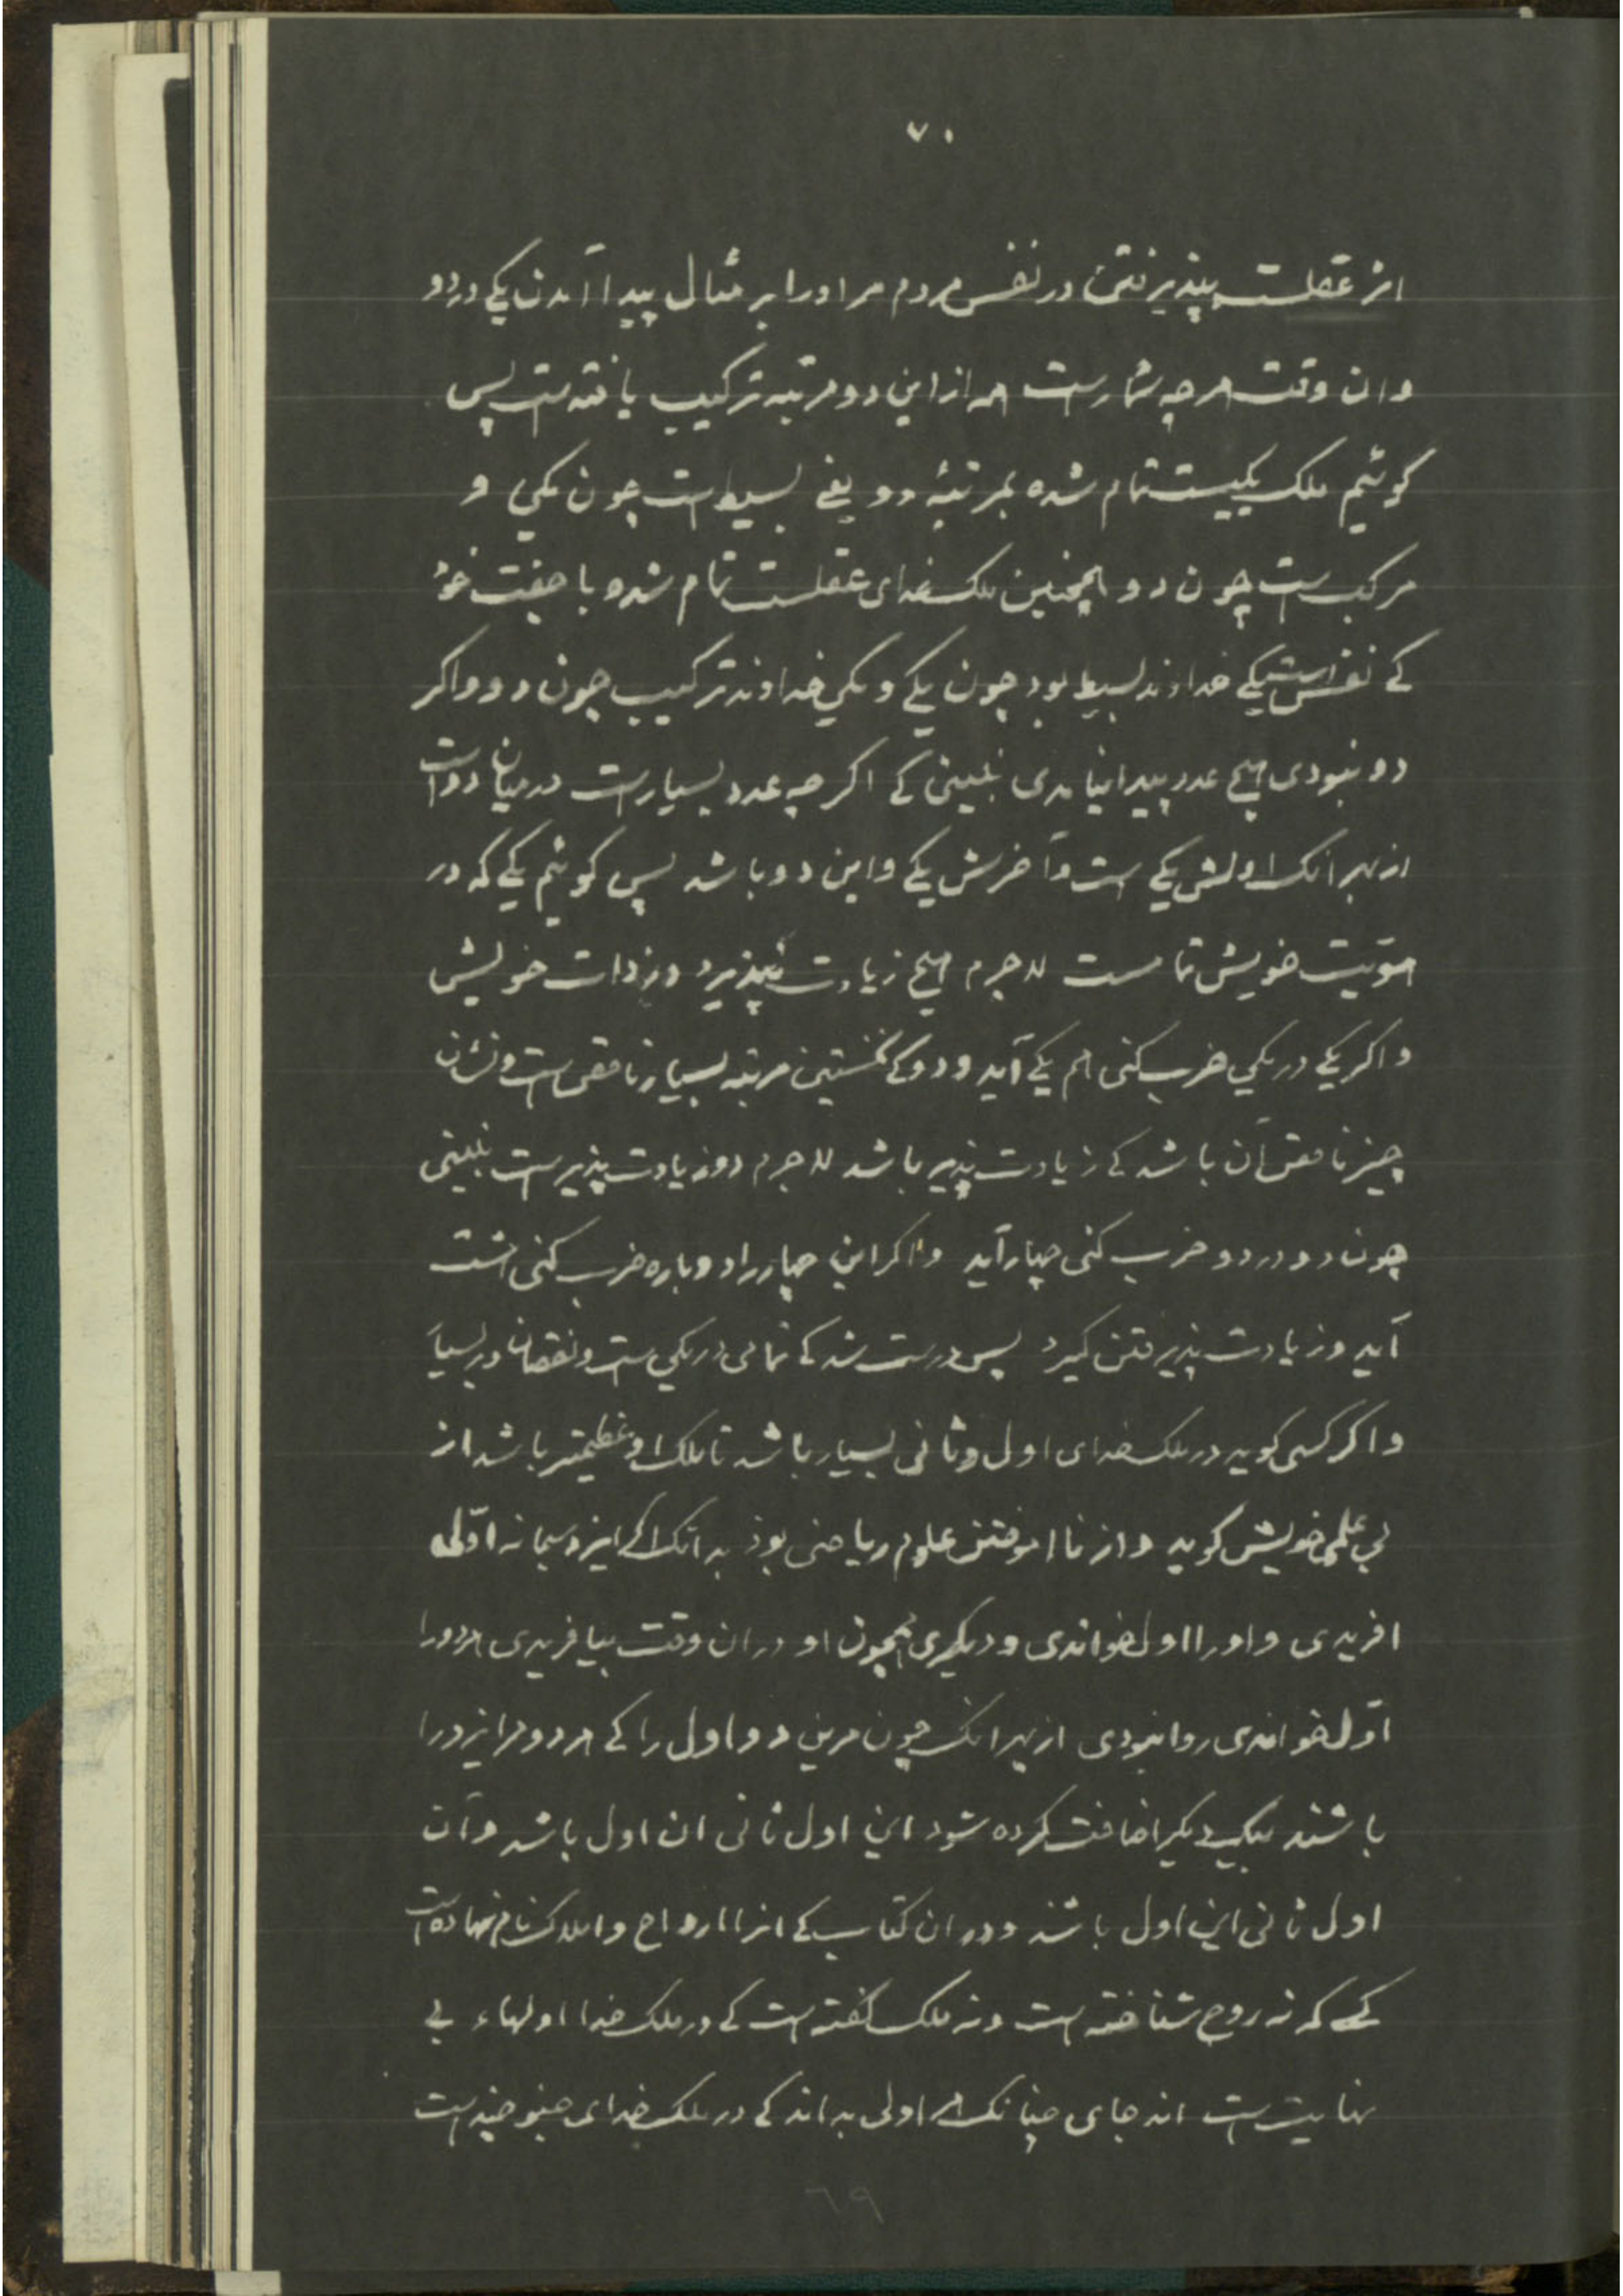 ۷۰
اثر عقلست پپذیرفتن در نفس مردم مر اورا بر مثال پیدا آمدن یکے در دو
وان وقت هرچه شمارست همه ازاین دو مرتبه ترکیب یافته ست پس
کوئیم ملک یکیست تمام شده بمرتبهٔ دو یعنے بسیط است چون یکی و
مرکب ست چون دو و همچنین ملک خدای عقلست تمام شده با جفت خو
کے نفس است یکے خداوند بسیط بود چون یکے و یکی خداوند ترکیب چون دو و اکر
دو نبودی هیچ عدد پیدا نیامدی نبینی کے اکرچه عدد بسیارست درمیان دو است
از بهر انک اولش یکے است و آخرش یکے و این دو باشد پس کوئیم یکے که در
هوّیت خویش تمامست لاجرم هیچ زیادت نپذیرد در ذات خویش
و اکر یکے در یکی ضرب کنی هم یکے آید و دو کے نخستین مرتبه بسیار ناقص است و نشان
چیز ناقص آن باشد کے زیادت پذیر باشد لاجرم دو زیادت پذیر ست نبینی
چون دو در دو ضرب کنی چهار آید و اکر این چهار را دوباره ضرب کنی هشت
آید و زیادت پذیرفتن کیرد پس درست شد کے تمامی در یکی ست و نقصان در بسیا
و اکر کسی کوید در ملک خدای اول و ثانی بسیار باشد تا ملک او عظیمتر باشد از
بی علمی خویش کوید و از نااموختن علوم ریاضی بود بدانک اکر ایزد سبحانه اوّلی
افریدی و اورا اول خواندی و دیکری همچون او دران وقت بیافریدی هردورا
اوّل خواندی روا نبودی ازبهر انک چون مرین دو اول را کے هر دو مر ایزد را
باشند بیکدیکر اضافت کرده شود این اول ثانی ان اول باشد و آن
اول ثانی این اول باشد و دران کتاب کے انرا ارواح و املاک نام نهاده است
کسے که نه روح شناخته است و نه ملک گفته است کے در ملک خدا اولهاء بے
نهایت است اندجای چنانک هر اولی بداند کے در ملک خدای جنو چیز است
٦٩